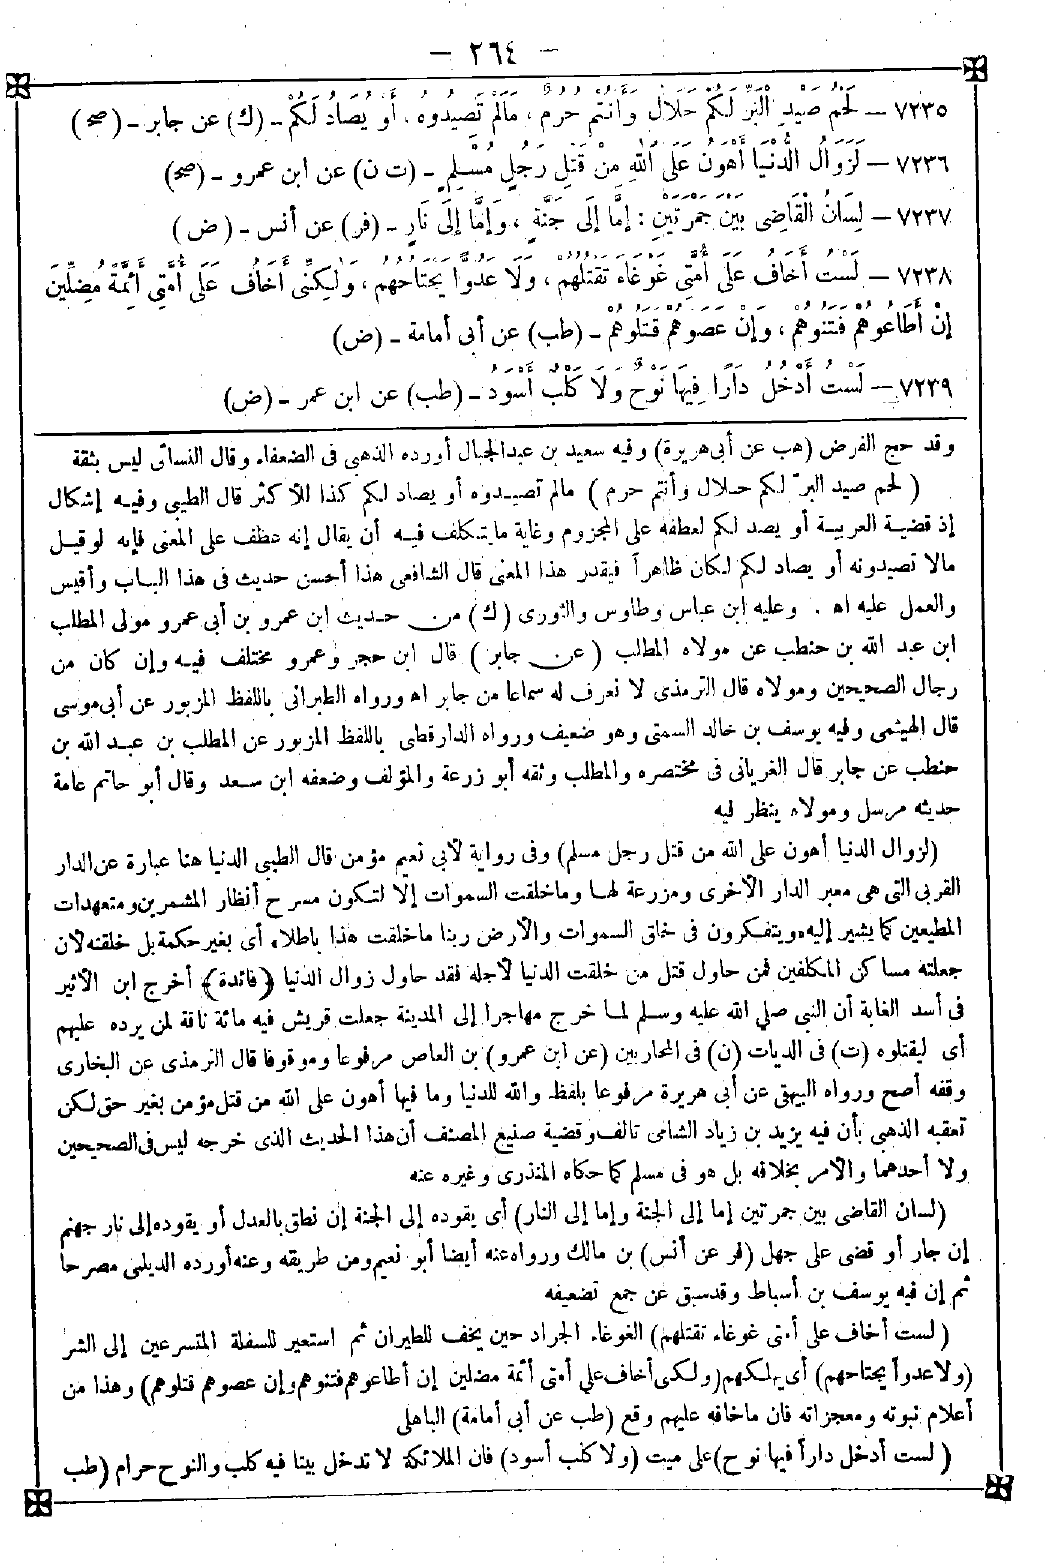 — ٢٦٤ —
٧٢٣٥ — لَحْمُ صَيْدِ الْبَرِّ لَكُمْ حَلَالٌ وَأَنْتُمْ حُرُمٌ ، مَالَمْ تَصِيدُوهُ ، أَوْ يُصَادُ لَكُمْ - (ك) عن جابر - (صح)
٧٢٣٦ — لَزَوَالُ الدُّنْيَا أَهْوَنُ عَلَى اللهِ مِنْ قَتْلِ رَجُلٍ مُسْلِمٍ - (ت ن) عن ابن عمرو - (صح)
٧٢٣٧ — لِسَانُ الْقَاضِى بَيْنَ جَمْرَتَيْنِ : إِمَّا إِلَى جَنَّةٍ ، وَإِمَّا إِلَى نَارٍ - (فر) عن أنس - (ض)
٧٢٣٨ — لَسْتُ أَخَافُ عَلَى أُمَّتِى غَوْغَاءَ تَقْتُلُهُمْ ، وَلَا عَدُوًّا يَجْتَاحُهُمْ ، وَلٰكِنِّى أَخَافُ عَلَى أُمَّتِى أَئِمَّةً مُضِلِّينَ
إِنْ أَطَاعُوهُمْ فَتَنُوهُمْ ، وَإِنْ عَصَوْهُمْ قَتَلُوهُمْ - (طب) عن أبى أمامة - (ض)
٧٢٣٩ — لَسْتُ أَدْخُلُ دَارًا فِيهَا نَوْحٌ وَلَا كَلْبٌ أَسْوَدُ - (طب) عن ابن عمر - (ض)
وقد حج الفرض (هب عن أبى هريرة) وفيه سعيد بن عبدالجبال أورده الذهبى فى الضعفاء وقال النسائى ليس بثقة
( لحم صيد البر لكم حلال وأنتم حرم ) مالم تصيدوه أو يصاد لكم كذا للأكثر قال الطيبى وفيه إشكال
إذ قضية العربية أو يصد لكم لعطفه على المجزوم وغاية مايتكلف فيه أن يقال إنه عطف على المعنى فإنه لو قيل
مالا تصيدونه أو يصاد لكم لكان ظاهراً فيقدر هذا المعنى قال الشافعى هذا أحسن حديث فى هذا الباب وأقيس
والعمل عليه اه . وعليه ابن عباس وطاوس والثورى (ك) من حديث ابن عمرو بن أبى عمرو مولى المطلب
ابن عبد الله بن حنطب عن مولاه المطلب (عن جابر) قال ابن حجر وعمرو مختلف فيه وإن كان من
رجال الصحيحين ومولاه قال الترمذى لا نعرف له سماعا من جابر اه ورواه الطبرانى باللفظ المزبور عن أبى موسى
قال الهيثمى وفيه يوسف بن خالد السمتى وهو ضعيف ورواه الدارقطنى باللفظ المزبور عن المطلب بن عبد الله بن
حنطب عن جابر قال الغريانى فى مختصره والمطلب وثقه أبو زرعة والمؤلف وضعفه ابن سعد وقال أبو حاتم عامة
حديثه مرسل ومولاه ينظر فيه
(لزوال الدنيا أهون على الله من قتل رجل مسلم) وفى رواية لأبى نعيم مؤمن قال الطيبى الدنيا هنا عبارة عن الدار
القربى التى هى معبر الدار الأخرى ومزرعة لها وما خلقت السموات إلا لتكون مسرح أنظار المشمرين ومتعهدات
المطيعين كما يشير إليه ويتفكرون فى خلق السموات والأرض ربنا ماخلقت هذا باطلا، أى بغير حكمة بل خلقته لان
جعلته مساكن المكلفين فمن حاول قتل من خلقت الدنيا لأجله فقد حاول زوال الدنيا (فائدة) أخرج ابن الأثير
فى أسد الغابة أن النبى صلى الله عليه وسلم لما خرج مهاجرا إلى المدينة جعلت قريش فيه مائة ناقة لمن يرده عليهم
أى ليقتلوه (ت) فى الديات (ن) فى المحاربين (عن ابن عمرو) بن العاص مرفوعا وموقوفا قال الترمذى عن البخارى
وقفه أصح ورواه البيهقى عن أبى هريرة مرفوعا بلفظ والله للدنيا وما فيها أهون على الله من قتل مؤمن بغير حق لكن
تعقبه الذهبى بأن فيه يزيد بن زياد الشامى تالف وقضية صنيع المصنف أن هذا الحديث الذى خرجه ليس فى الصحيحين
ولا أحدهما والأمر بخلافه بل هو فى مسلم كما حكاه المنذرى وغيره عنه
(لسان القاضى بين جمرتين إما إلى الجنة وإما إلى النار) أى يقوده إلى الجنة إن نطق بالعدل أو يقوده إلى نار جهنم
إن جار أو قضى على جهل (فر عن أنس) بن مالك ورواه عنه أيضا أبو نعيم ومن طريقه وعنه أورده الديلمى مصرحا
ثم إن فيه يوسف بن أسباط وقد سبق عن جمع تضعيفه
( لست أخاف على أمتى غوغاء تقتلهم) الغوغاء الجراد حين يخف للطيران ثم استعير للسفلة المتسرعين إلى الشر
(ولا عدواً يجتاحهم) أى يهلكهم (ولكى أخاف على أمتى أئمة مضلين إن أطاعوهم فتنوهم وإن عصوهم قتلوهم) وهذا من
أعلام نبوته ومعجزاته فان ماخافه عليهم وقع (طب عن أبى أمامة) الباهلى
( لست أدخل داراً فيها نوح) على ميت (ولا كلب أسود) فان الملائكة لا تدخل بيتا فيه كلب والنوح حرام (طب